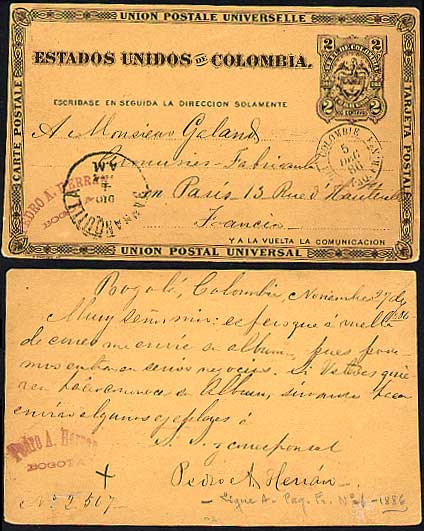 UNION POSTALE UNIVERSELLE
ESTADOS UNIDOS DE COLOMBIA.
2 2
2 2
ESCRIBASE EN SEGUIDA LA DIRECCION SOLAMENTE
CARTE POSTALE
TARJETA POSTALE
A Monsieur Galand
Fabricante
en París 13 Rue d'Hauteville
Francia
PEDRO A. HERRAN
BOGOTA
BARRANQUILLA
DIC
A.M.
COLOMBIE
5
DEC
86
Y A LA VUELTA LA COMUNICACION
UNION POSTAL UNIVERSAL
Bogotá, Colombia, Noviembre 27 de
1886
Muy señor mio: espero que á vuelta
de correo me envie su album, pues
en serios negocios. Si Ustedes
de su Album, sirvanse
enviar algunos ejemplares á
S. S. y corresponsal
Pedro A. Herrán
Pedro A. Herran
BOGOTA
No. 2507
Ligue A. Pag. Fr. No. 1886